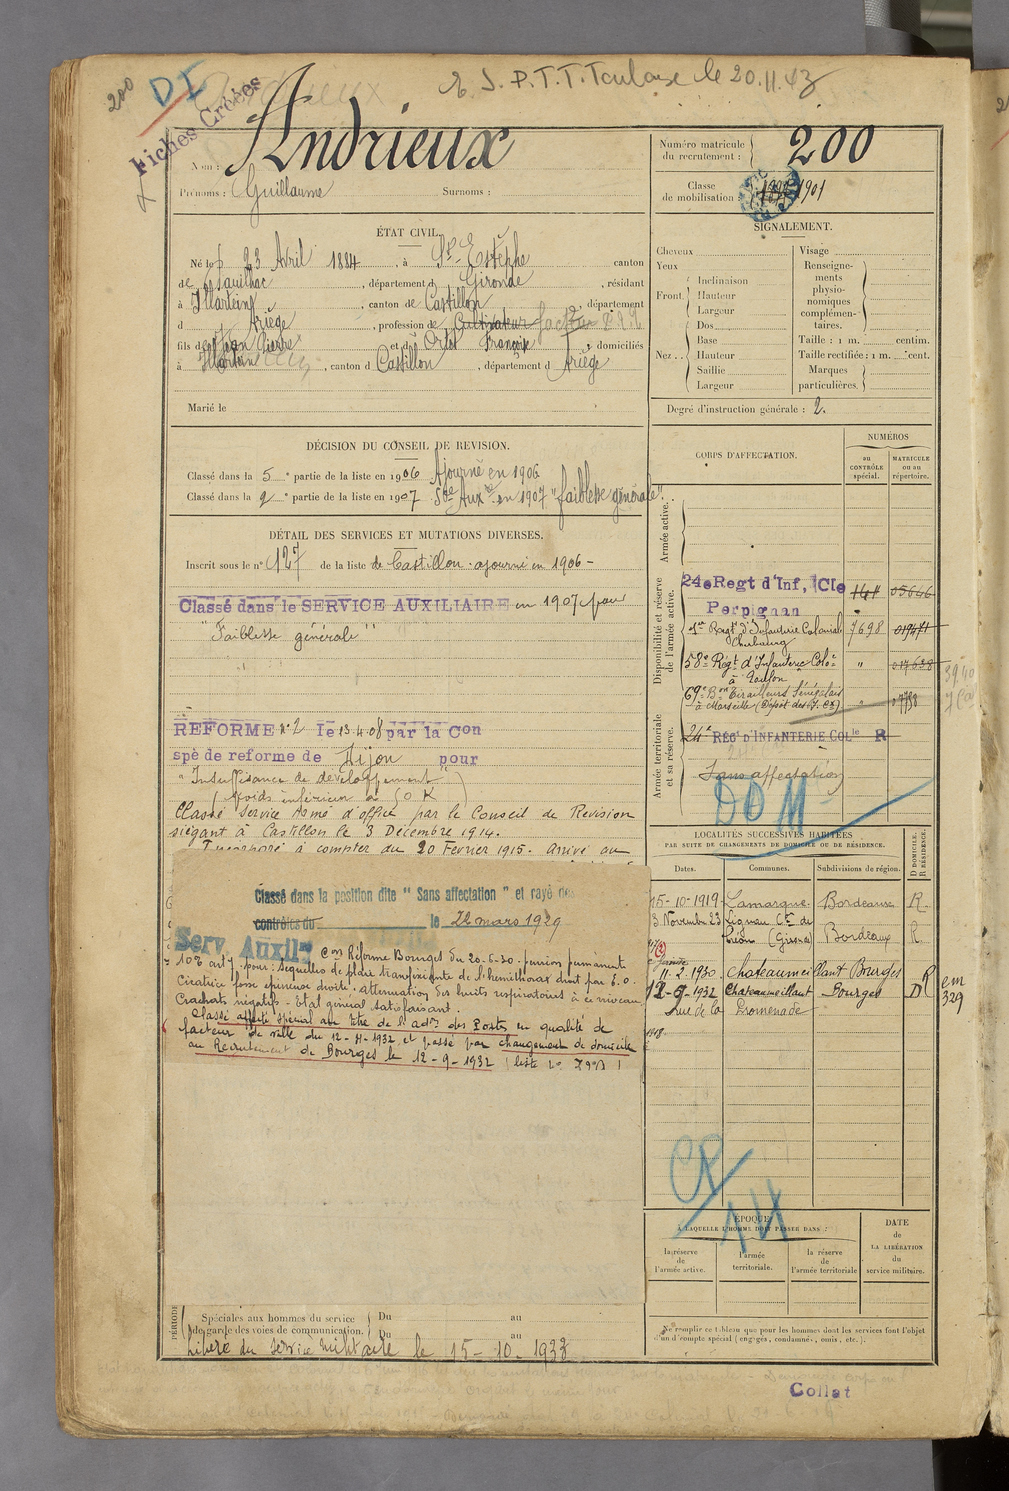 200
DI
E.S. P.T.T. Toulouse le 20.11.43
Fiches Créées
Nom : Andrieux
Prénoms : Guillaume Surnoms :
Numéro matricule du recrutement : 200
Classe de mobilisation : 1901
ÉTAT CIVIL.
Né le 23 Avril 1884, à St-Estèphe canton
de Pauillac, département d Gironde, résidant
à Illartein, canton de Castillon, département
d Ariège, profession de Cultivateur facteur
fils de Jean Pierre et d Ortet Françoise, domiciliés
à Illartein, canton d Castillon, département d Ariège
Marié le
SIGNALEMENT.
Cheveux
Yeux
Front.
Inclinaison
Hauteur
Largeur
Nez ..
Dos
Base
Hauteur
Saillie
Largeur
Visage
Renseignements physionomiques complémentaires.
Taille : 1 m. centim.
Taille rectifiée : 1 m. cent.
Marques particulières.
Degré d'instruction générale : 2.
DÉCISION DU CONSEIL DE REVISION.
Classé dans la 5e partie de la liste en 1906 Ajourné en 1906
Classé dans la 2e partie de la liste en 1907 Sce Auxre en 1907 "faiblesse générale".
DÉTAIL DES SERVICES ET MUTATIONS DIVERSES.
Inscrit sous le n° 127 de la liste de Castillon. ajourné en 1906 -
Classé dans le SERVICE AUXILIAIRE en 1907 pour
"Faiblesse générale"
REFORMÉ N° 2 le 13.4.08 par la Con
spè de reforme de Dijon pour
"Insuffisance de développement"
(Poids inférieur à 50 K)
Classé service armé d'office par le Conseil de Revision
siégant à Castillon le 3 Décembre 1914.
Incorporé à compter du 20 Février 1915. Arrivé au
Classé dans la position dite "Sans affectation" et rayé des
contrôles du le 22 mars 1929
Serv. Auxil.re
Con Réforme Bourges du 20-5-30. pension permanente
10% art 7. pour : séquelles de plaie transfixiante de l'hémithorax droit par B.O.
Cicatrice fosse épineuse droite. atténuation des bruits respiratoires à ce niveau
Crachats négatifs - Etat général satisfaisant.
Classé affecté spécial au titre de l'adon des Postes en qualité de
facteur de ville du 12-4-1932 et passé par changement de domicile
au Recrutement de Bourges le 12-9-1932
CORPS D'AFFECTATION.
NUMÉROS
au CONTRÔLE spécial.
MATRICULE ou au répertoire.
Armée active.
Disponibilité et réserve de l'armée active.
Armée territoriale et sa réserve.
24e Regt d'Inf, Cle 141 05646
Perpignan
1er Regt d'Infanterie Colonial 7698 019471
Cherbourg
58e Regt d'Infanterie Colle " 017638
à Toulon
69e Bon Tirailleurs Sénégalais " 7780
à Marseille (Dépôt des I. Ca)
24e RÉGt D'INFANTERIE COLle R
Sans affectation
DOM
LOCALITÉS SUCCESSIVES HABITÉES
PAR SUITE DE CHANGEMENTS DE DOMICILE OU DE RÉSIDENCE.
D DOMICILE. R RÉSIDENCE.
Dates. Communes. Subdivisions de région.
15-10-1919 Lamarque Bordeaux R.
3 Novembre 23 Lignan Cton de Créon (Gironde) Bordeaux R.
11-2-1930 Chateaumeillant Bourges R
12-9-1932 Chateaumeillant Bourges D
rue de la Promenade
em 329
CP 14
ÉPOQUE
À LAQUELLE L'HOMME DOIT PASSER DANS :
la réserve de l'armée active.
l'armée territoriale.
la réserve de l'armée territoriale
DATE de LA LIBÉRATION du service militaire.
Ne remplir ce tableau que pour les hommes dont les services font l'objet
d'un décompte spécial (engagés, condamnés, omis, etc.).
PÉRIODE
Spéciales aux hommes du service
de garde des voies de communication.
Du au
Du au
Libéré du service militaire le 15-10-1933
Collat